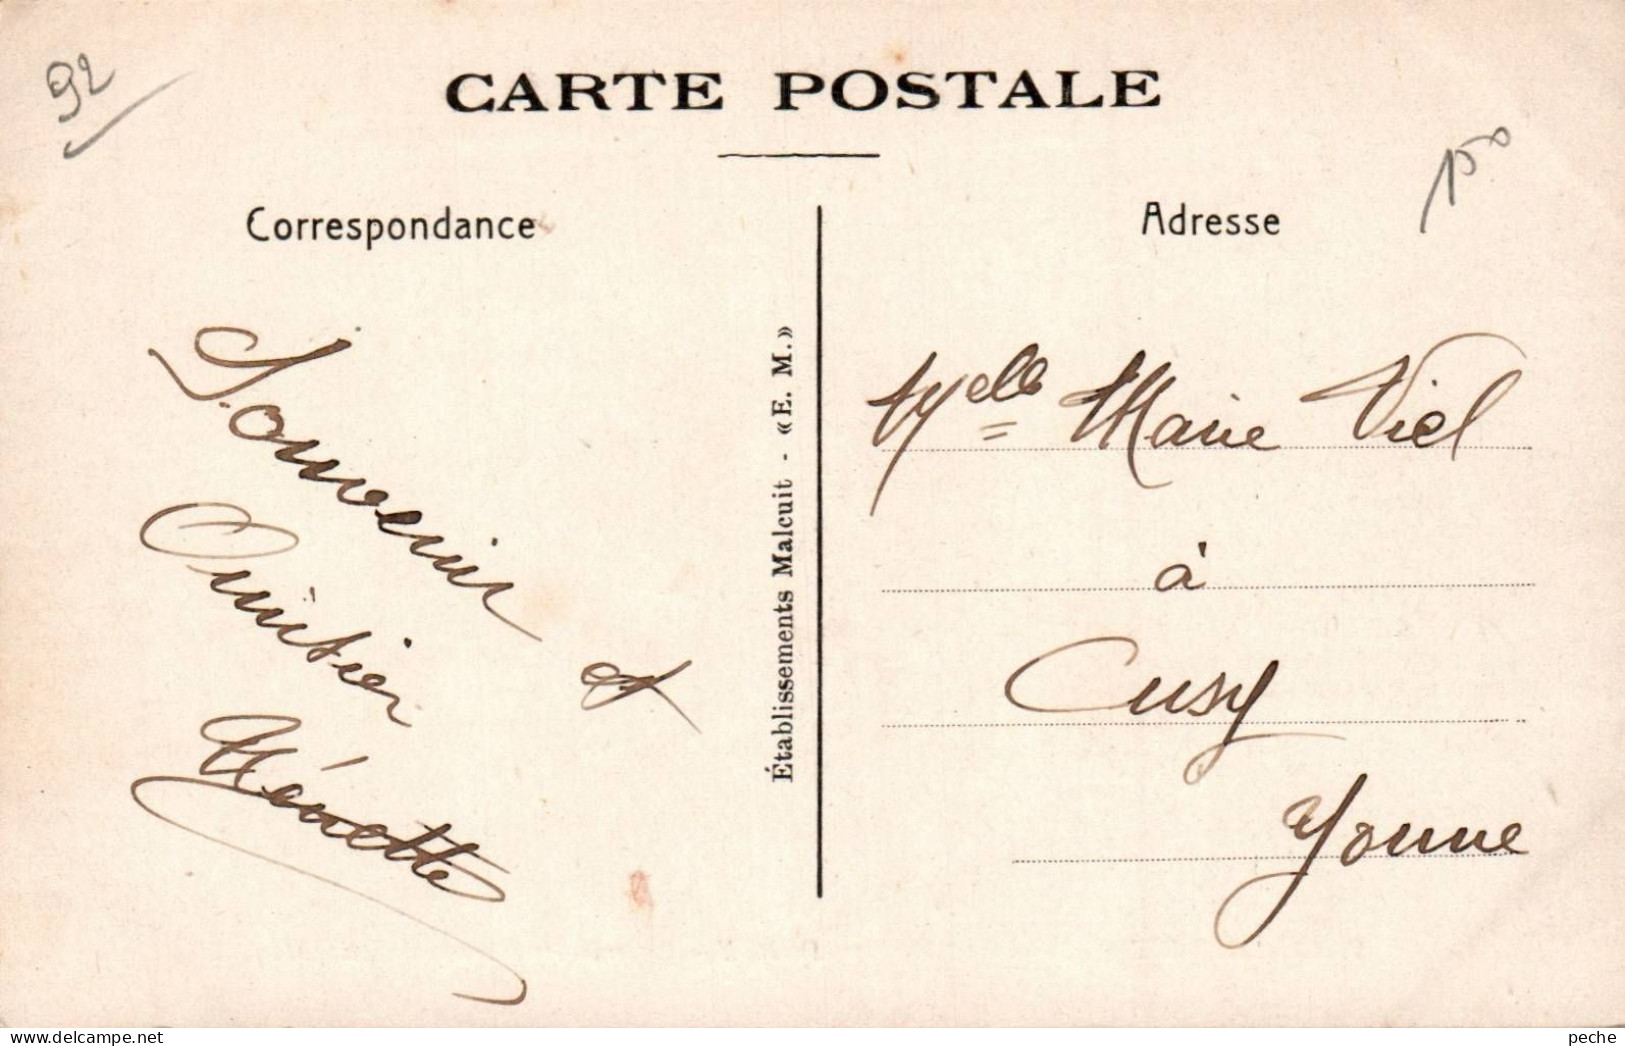 92
CARTE POSTALE
150
Correspondance
Adresse
Souvenir et
Amitiés
Ménette
Établissements Malcuit - « E. M. »
Melle Marie Viel
à
Cusy
Yonne
www.delcampe.net
peche